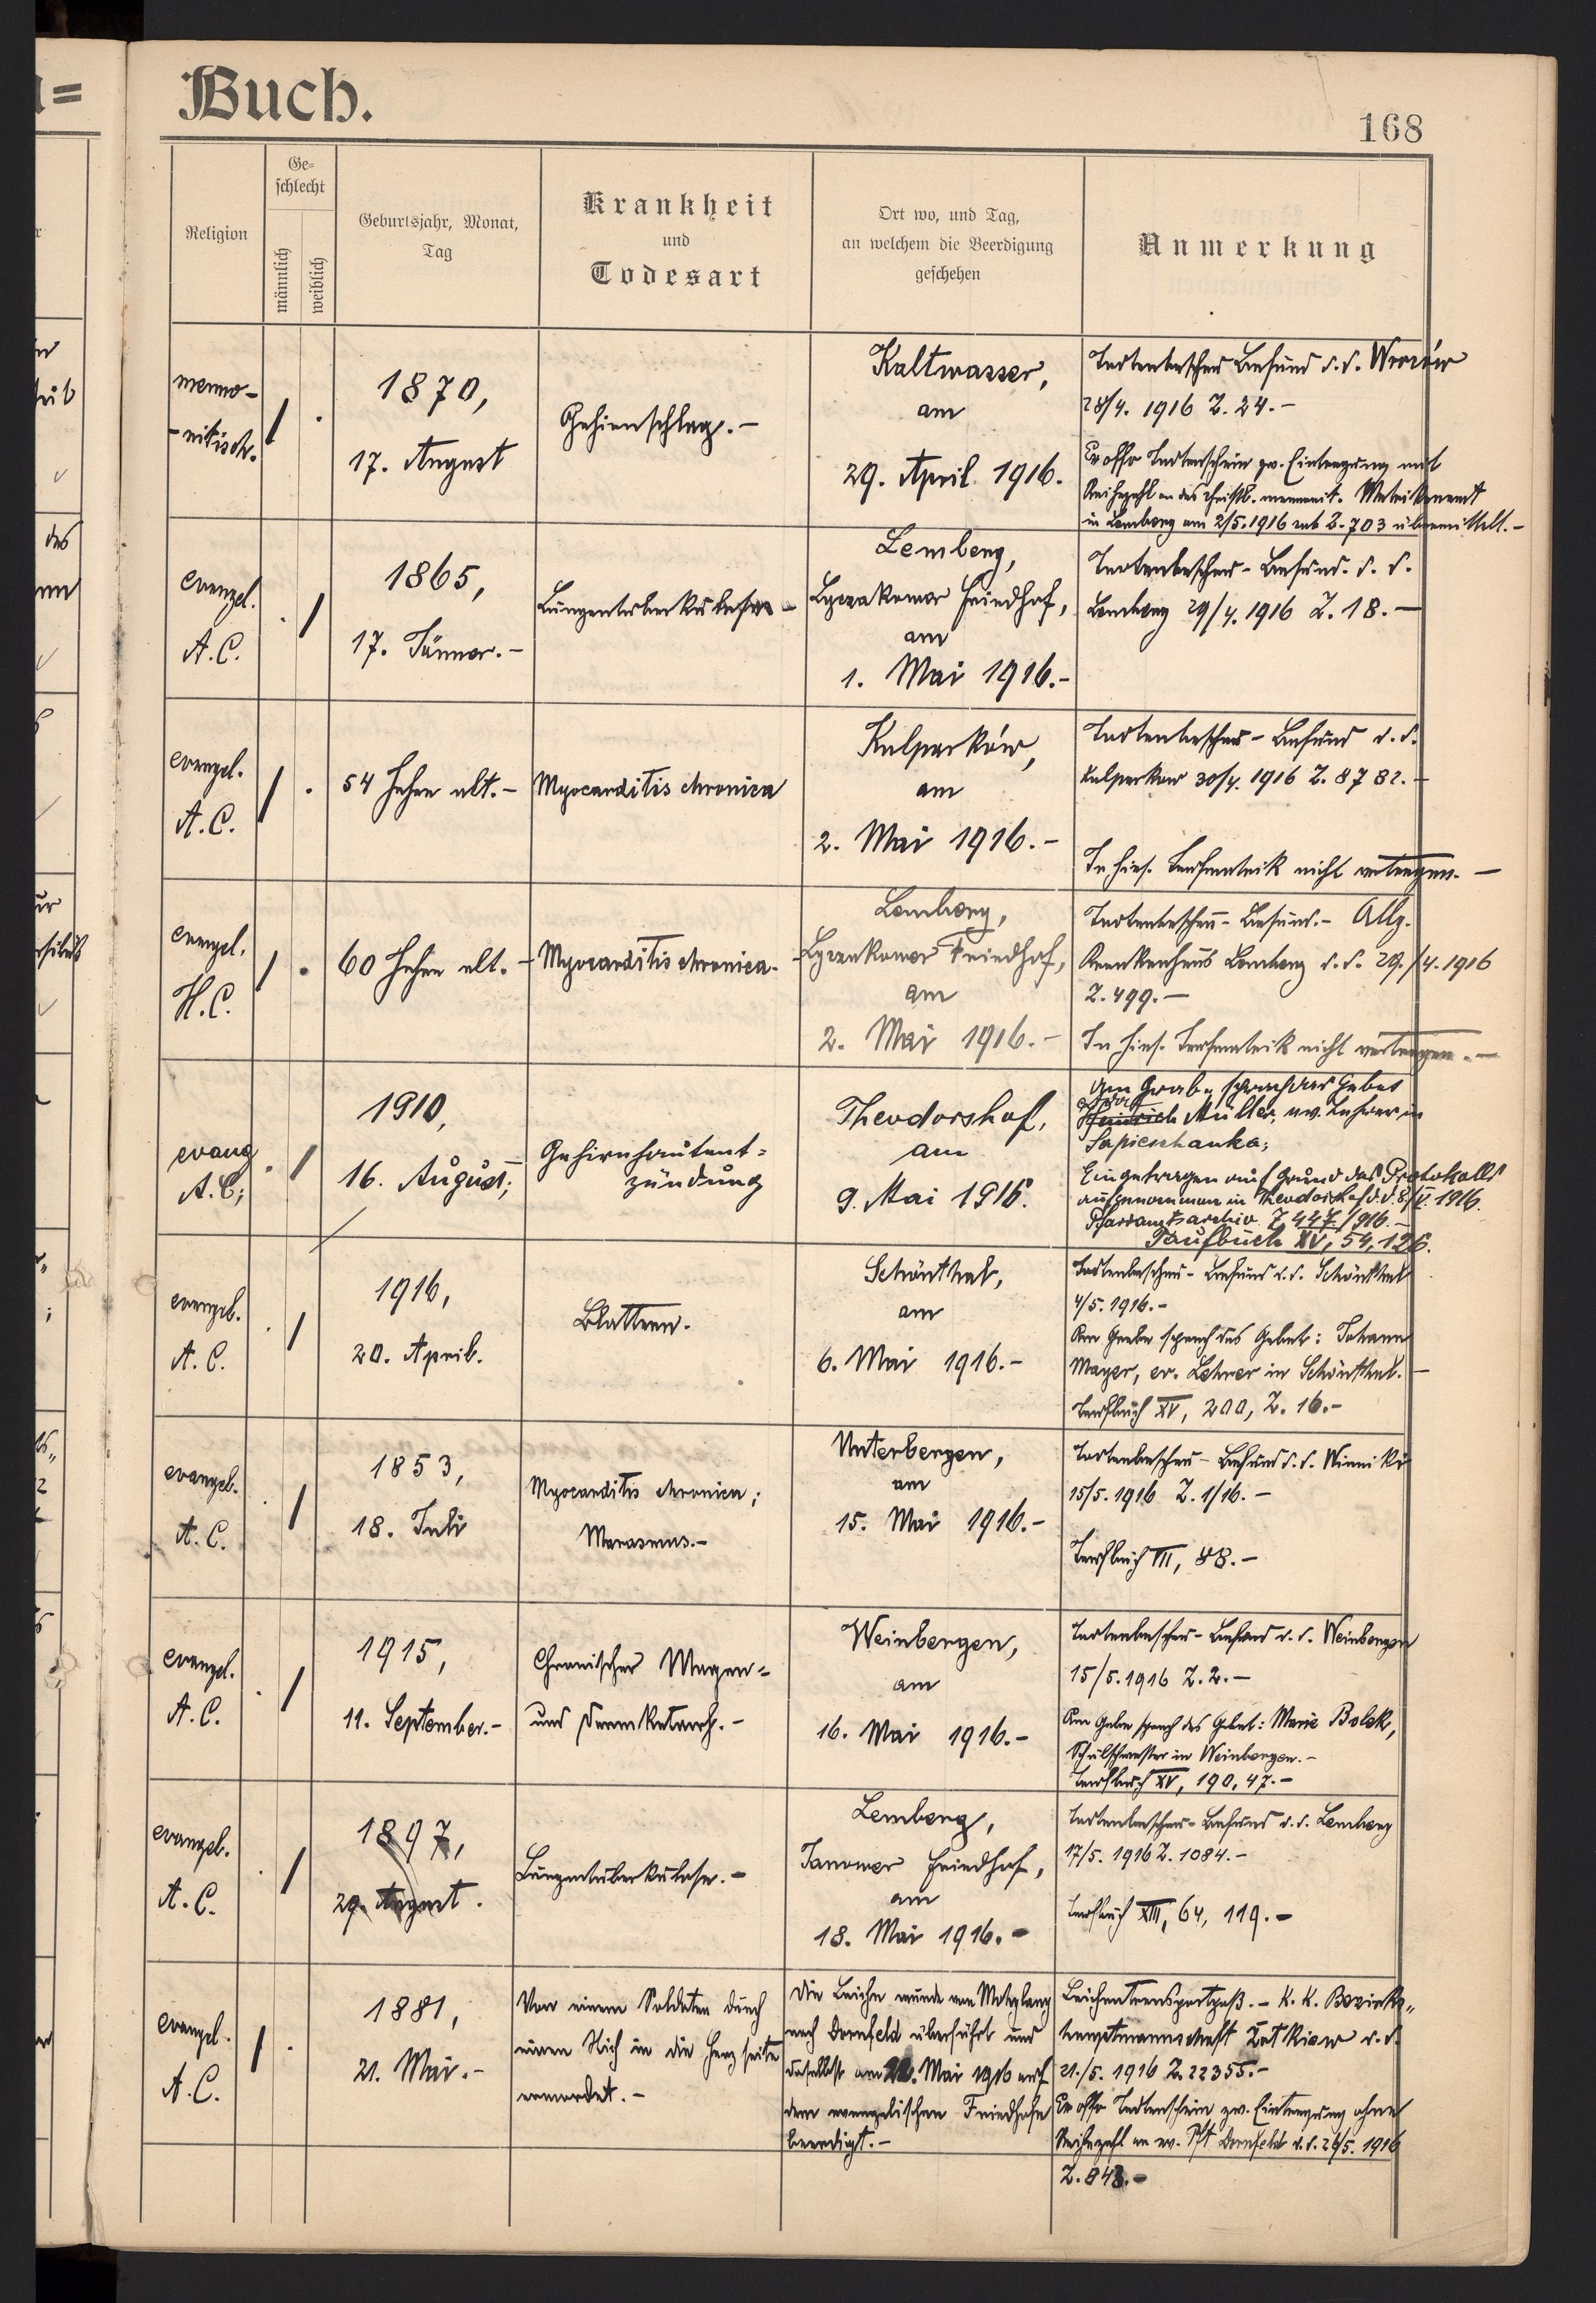 Buch.
168
Religion
Ge=
schlecht
männlich
weiblich
Geburtsjahr, Monat,
Tag
Krankheit
und
Todesart
Ort wo, und Tag,
an welchem die Beerdigung
geschehen
Anmerkung
menno-
-nitisch.
1870,
17. August
Gehirnschlag.-
Kaltwasser,
am
29. April 1916.
Totenbeschau Befund d. d.
28/4. 1916 Z. 24.-
Ex offo Totenschein zw. Eintragung mit
Reihezahl an das christl. mennonit. Matrikenamt
in Lemberg am 2/5.1916 sub Z. 703 übermittelt.-
evangel.
A.C.
1865,
17. Jänner.-
Lungentuberkulose -
Lemberg,
Lyczakower Friedhof,
am
1. Mai 1916.-
Totenbeschau-Befund. d. d.
Lemberg 29/4. 1916 Z. 18.-
evangel.
A.C.
54 Jahre alt.-
Myocarditis chronica
Kulparków,
am
2. Mai 1916.-
Totenbeschau-Befund d. d.
Kulparkow 30/4. 1916 Z. 8782.-
In hies. Taufmatrik nicht vertragen.-
evangel.
H.C.
60 Jahre alt.-
Myocarditis chronica.-
Lemberg,
Lyczakower Friedhof,
am
2. Mai 1916.-
Totenbeschau-Befund.- Allg.
Krankenhaus Lemberg d. d. 29./4. 1916
Z. 499.-
In hies. Taufmatrik nicht vertragen.-
evang
A.C;
1910,
16. August;
Gehirnhautent=
zündung
Theodorshof,
am
9. Mai 1916.
Am Grabe sprach das Gebet
Heinrich Müller, ev. Lehrer in
Sapieschanka;
Eingetragen auf Grund des Protokolls
aufgenommen in Theodorshof d. d. 8./V. 1916.
Pfarramtsarchiv Z 447/916.-
Taufbuch XV, 54, 126.
evangel.
A.C.
1916,
20. April.
Blattern.
Schönthal,
am
6. Mai 1916.-
Totenbeschau-Befund d. d. Schönthal
4/5. 1916.-
Am Grabe sprach das Gebet: Johann
Mayer, ev. Lehrer in Schönthal.-
Taufbuch XV, 200, Z. 16.-
evangel.
A.C.
1853,
18. Juli
Myocarditis chronica;
Marasmus.-
Unterbergen,
am
15. Mai 1916.-
Totenbeschau-Befund d. d. Winniki
15/5. 1916 Z. 1/16.-
Taufbuch VII, 88.-
evangel.
A.C.
1915,
11. September.-
Chronischer Magen-
und Darmkatarrh.-
Weinbergen,
am
16. Mai 1916.-
Totenbeschau-Befund d. d. Weinbergen
15/5.1916 Z. 2.-
Am Grabe sprach das Gebet: Marie Bolek,
Schulschwester in Weinbergen.-
Taufbuch XV, 190, 47.-
evangel.
A.C.
1897,
29. August.
Lungentuberkulose.-
Lemberg,
Janower Friedhof,
am
18. Mai 1916.-
Totenbeschau-Befund d. d. Lemberg
17/5. 1916 Z. 1084.-
Taufbuch XIII, 64, 119.-
evangel.
A.C.
1881,
21. Mai.-
Von einem Soldaten durch
einen Stich in die Herzseite
ermordet.-
Die Leiche wurde von
nach Dornfeld überführt und
daselbst am Mai 1916 auf
dem evangelischen Friedhofe
beerdigt.-
Leichentransportpaß.- K. K. Bezirks-
hauptmannschaft Zołkiew d. d.
21./5. 1916 Z. 22355.-
Ex offo Totenschein zw. Eintragung ohne
Reihezahl an ev. Pft Dornfeld d. d. 26/5. 1916
Z. 843.-